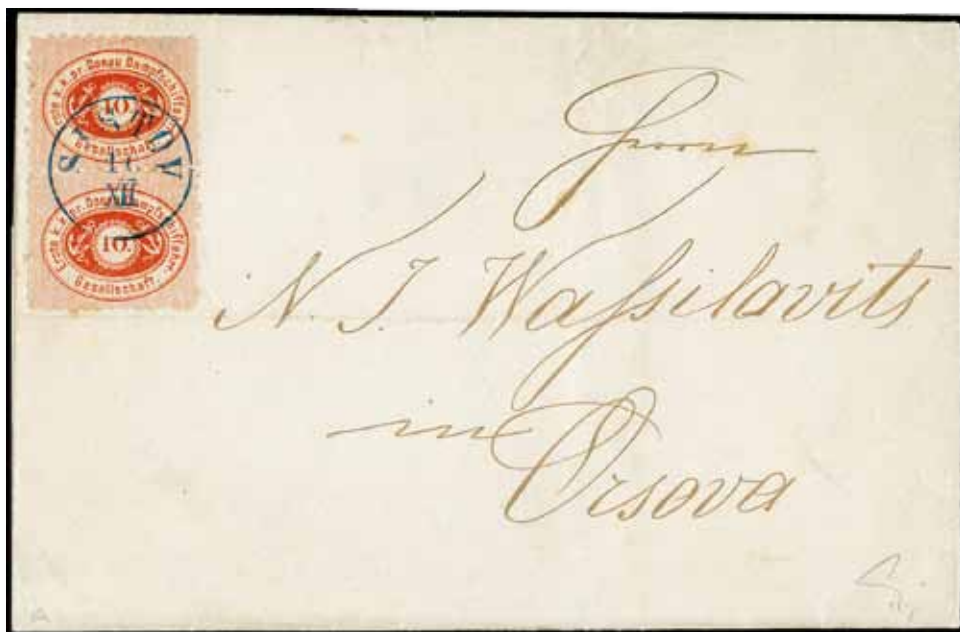 Erste k. k. pr. Donau Dampfschiffahrt.
Gesellschaft.
10.
SISTOV
XII
Erste k. k. pr. Donau Dampfschiffahrt.
Gesellschaft.
10.
Herrn
N. J. Waſsilavits
in
Orsova